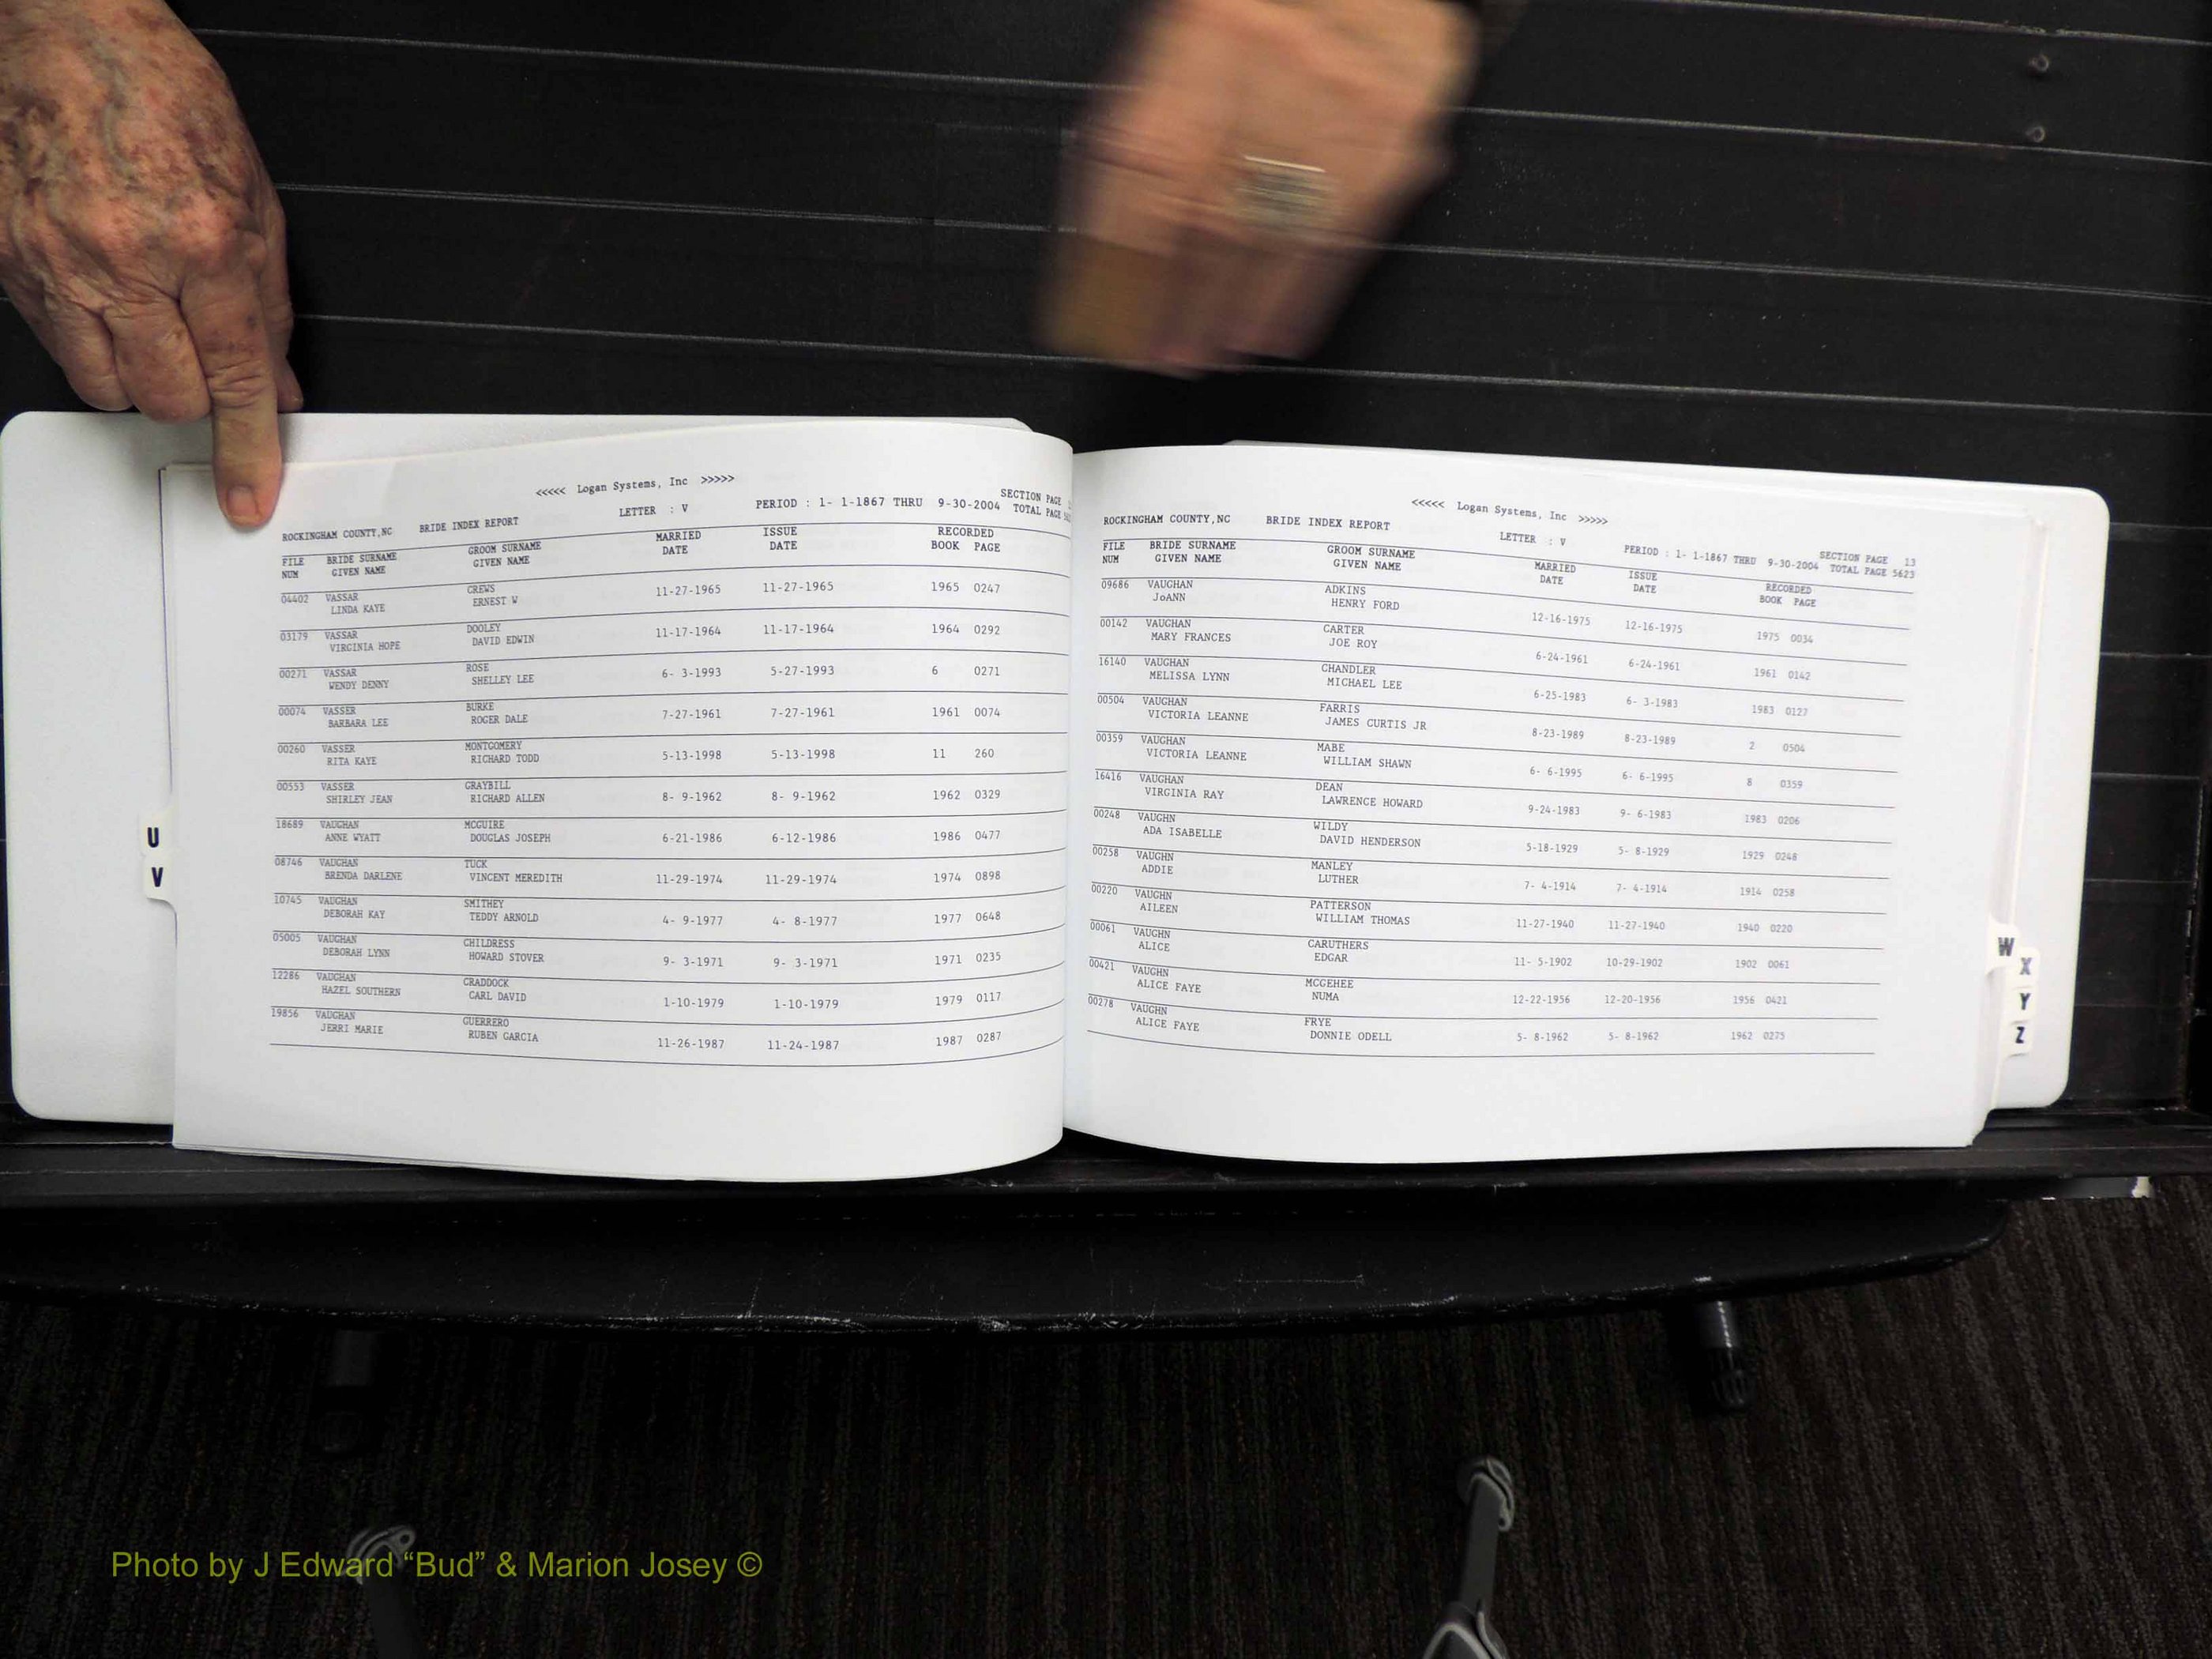 <<<<< Logan Systems, Inc >>>>>
ROCKINGHAM COUNTY,NC BRIDE INDEX REPORT LETTER : V PERIOD : 1- 1-1867 THRU 9-30-2004 SECTION PAGE
TOTAL PAGE
FILE BRIDE SURNAME GROOM SURNAME MARRIED ISSUE RECORDED
NUM GIVEN NAME GIVEN NAME DATE DATE BOOK PAGE
04402 VASSAR CREWS 11-27-1965 11-27-1965 1965 0247
LINDA KAYE ERNEST W
03179 VASSAR DOOLEY 11-17-1964 11-17-1964 1964 0292
VIRGINIA HOPE DAVID EDWIN
00271 VASSAR ROSE 6- 3-1993 5-27-1993 6 0271
WENDY DENNY SHELLEY LEE
00074 VASSER BURKE 7-27-1961 7-27-1961 1961 0074
BARBARA LEE ROGER DALE
00260 VASSER MONTGOMERY 5-13-1998 5-13-1998 11 260
RITA KAYE RICHARD TODD
00553 VASSER GRAYBILL 8- 9-1962 8- 9-1962 1962 0329
SHIRLEY JEAN RICHARD ALLEN
18689 VAUGHAN MCGUIRE 6-21-1986 6-12-1986 1986 0477
ANNE WYATT DOUGLAS JOSEPH
08746 VAUGHAN TUCK 11-29-1974 11-29-1974 1974 0898
BRENDA DARLENE VINCENT MEREDITH
10745 VAUGHAN SMITHEY 4- 9-1977 4- 8-1977 1977 0648
DEBORAH KAY TEDDY ARNOLD
05005 VAUGHAN CHILDRESS 9- 3-1971 9- 3-1971 1971 0235
DEBORAH LYNN HOWARD STOVER
12286 VAUGHAN CRADDOCK 1-10-1979 1-10-1979 1979 0117
HAZEL SOUTHERN CARL DAVID
19856 VAUGHAN GUERRERO 11-26-1987 11-24-1987 1987 0287
JERRI MARIE RUBEN GARCIA
U
V
<<<<< Logan Systems, Inc >>>>>
ROCKINGHAM COUNTY,NC BRIDE INDEX REPORT LETTER : V PERIOD : 1- 1-1867 THRU 9-30-2004 SECTION PAGE 13
TOTAL PAGE 5623
FILE BRIDE SURNAME GROOM SURNAME MARRIED ISSUE RECORDED
NUM GIVEN NAME GIVEN NAME DATE DATE BOOK PAGE
09686 VAUGHAN ADKINS 12-16-1975 12-16-1975 1975 0034
JoANN HENRY FORD
00142 VAUGHAN CARTER 6-24-1961 6-24-1961 1961 0142
MARY FRANCES JOE ROY
16140 VAUGHAN CHANDLER 6-25-1983 6- 3-1983 1983 0127
MELISSA LYNN MICHAEL LEE
00504 VAUGHAN FARRIS 8-23-1989 8-23-1989 2 0504
VICTORIA LEANNE JAMES CURTIS JR
00359 VAUGHAN MABE 6- 6-1995 6- 6-1995 8 0359
VICTORIA LEANNE WILLIAM SHAWN
16416 VAUGHAN DEAN 9-24-1983 9- 6-1983 1983 0206
VIRGINIA RAY LAWRENCE HOWARD
00248 VAUGHN WILDY 5-18-1929 5- 8-1929 1929 0248
ADA ISABELLE DAVID HENDERSON
00258 VAUGHN MANLEY 7- 4-1914 7- 4-1914 1914 0258
ADDIE LUTHER
00220 VAUGHN PATTERSON 11-27-1940 11-27-1940 1940 0220
AILEEN WILLIAM THOMAS
00061 VAUGHN CARUTHERS 11- 5-1902 10-29-1902 1902 0061
ALICE EDGAR
00421 VAUGHN MCGEHEE 12-22-1956 12-20-1956 1956 0421
ALICE FAYE NUMA
00278 VAUGHN FRYE 5- 8-1962 5- 8-1962 1962 0275
ALICE FAYE DONNIE ODELL
W
X
Y
Z
Photo by J Edward “Bud” & Marion Josey ©